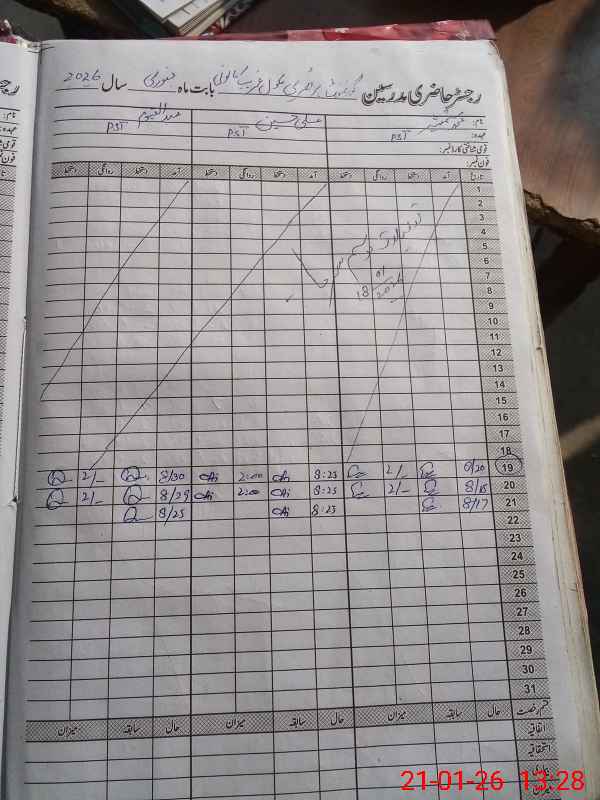 رجسٹر حاضری مدرسین گورنمنٹ پرائمری سکول غریب کالونی بابت ماہ جنوری سال 2026
نام:
عہدہ: PST علی حسین PST عبدالقیوم PST
قومی شناختی کارڈ نمبر:
فون نمبر:
تاریخ آمد دستخط روانگی دستخط آمد دستخط روانگی دستخط آمد دستخط روانگی دستخط
1
2
3
4
5
6
7
8
9
10
11
12
13
14
15
16
17
18
موسم سرما
18 01 2026
19 8/20 2/- 8:25 2:00 8/30 2/-
20 8/15 2/- 8:25 2:00 8/29 2/-
21 8/17 8:25 8/25
22
23
24
25
26
27
28
29
30
31
قسم رخصت حال سابقہ میزان حال سابقہ میزان حال سابقہ میزان
اتفاقیہ
استحقاقیہ
بیماری
میزان
21-01-26 13:28